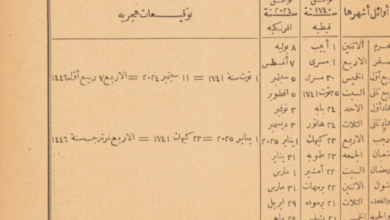 أوائل أشهرها
سنة ١٧٤٠ قبطية
سنة ٢٠٢٤ افرنكية
توقيعات هجرية
الاثنين ١ أبيب ٨ يوليه
الاربع ١ مسرى ٧ أغسطس
الخميس ٣٠ مسرى ٥ سبتمبر ١ توت سنة ١٧٤١ = ١١ سبتمبر ٢٠٢٤ = الاربع ٧ ربيع أول ١٤٤٦
السبت ٢٥ توت ١٧٤١ ٥ اكتوبر
الاحد ٢٤ بابه ٣ نوفبر
الثلاث ٢٤ هاتور ٣ ديسمبر
الاربع ٢٣ كيهك ١ يناير ٢٠٢٥ ١ يناير ٢٠٢٥ = ٢٣ كيهك ١٧٤١ = الاربع غرة رجب سنة ١٤٤٦
الجمعه ٢٣ طوبه ٣١ يناير
السبت ٢٢ أمشير ١ مارس
الاثنين ٢٢ برمهات ٣١ مارس
الثلاث ٢١ برموده ٢٩ ابريل